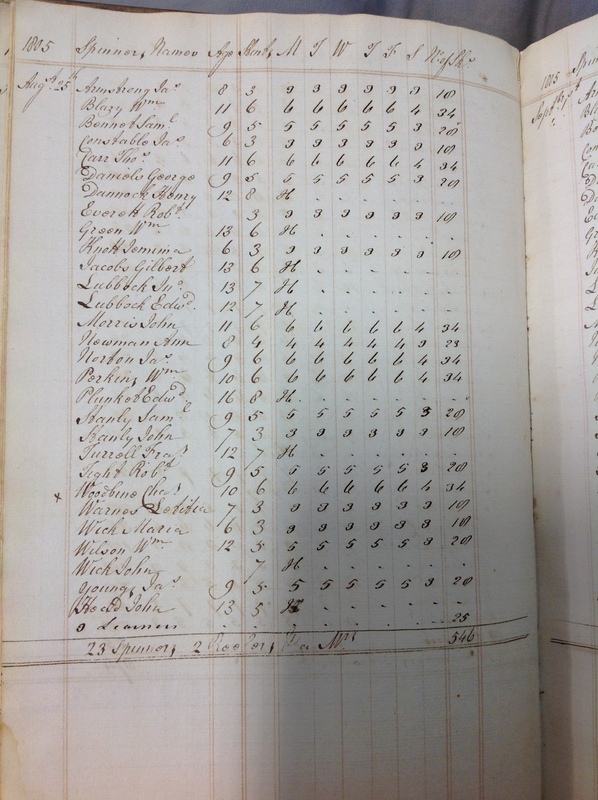 1805 Spinners Names Age Stints M T W T F S No of Sks
Augst 25th Armstrong Jas 8 3 3 3 3 3 3 3 18
Blazy Wm 11 6 6 6 6 6 6 4 34
Bennet Saml 9 5 5 5 5 5 5 3 28
Constable Jas 6 3 3 3 3 3 3 3 18
Carr Thos 11 6 6 6 6 6 6 4 34
Daniels George 9 5 5 5 5 5 5 3 28
Dannock Henry 12 8 H . . . . . .
Everett Robt 3 3 3 3 3 3 3 18
Green Wm 13 6 H . . . . . .
Knott Jemima 6 3 3 3 3 3 3 3 18
Jacobs Gilbert 13 6 H . . . . . .
Lubbock Jno 13 7 H . . . . . .
Lubbock Edwd 12 7 H . . . . . .
Morris John 11 6 6 6 6 6 6 4 34
Newman Ann 8 4 4 4 4 4 4 3 23
Norton Jas 9 6 6 6 6 6 6 4 34
Perkins Wm 10 6 6 6 6 6 6 4 34
Plunket Edwd 16 8 H . . . . . .
Stanly Saml 9 5 5 5 5 5 5 3 28
Stanly John 7 3 3 3 3 3 3 3 18
Turrell Fras 12 7 H . . . . . .
Tight Robt 9 5 5 5 5 5 5 3 28
x Woodbine Chas 10 6 6 6 6 6 6 4 34
Warnes Letitia 7 3 3 3 3 3 3 3 18
Wick Maria 6 3 3 3 3 3 3 3 18
Wilson Wm 12 5 5 5 5 5 5 3 28
Wick John 7 H . . . . . .
Youngs Jas 9 5 5 5 5 5 5 3 28
Hoad John 13 5 H . . . . . .
3 Learners . . . . . . . . 25
23 Spinners 2 Reelers 546
1805 Spin
Septr 1st